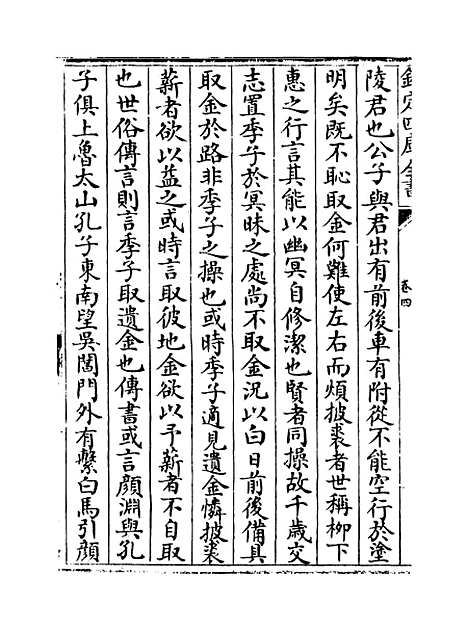 欽定四庫全書
卷四
陵君也公子與君出有前後車有附從不能空行於塗
明矣既不恥取金何難使左右而煩披裘者世稱柳下
惠之行言其能以幽冥自修潔也賢者同操故千歲交
志置季子於冥昧之處尚不取金況以白日前後備具
取金於路非季子之操也或時季子適見遺金憐披裘
薪者欲以益之或時言取彼地金欲以予薪者不自取
也世俗傳言則言季子取遺金也傳書或言顏淵與孔
子俱上魯太山孔子東南望吳閶門外有繫白馬引顏